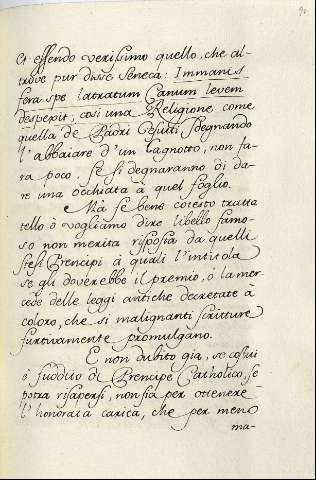 Et essendo verissimo quello, che al-
trove pur disse Seneca: Immanis
fera spe latratum Canum levem
despexit, così una Religione come
quella de Padri Gesuiti sdegnando
l'abbaiare d'un Cagnotto, non fa-
rà poco, se si degnaranno di da-
re una occhiata à quel foglio.
Mà se bene cotesto tratta
tello ò vogliamo dire libello famo-
so non merita risposta da quelli
stessi Prencipi à quali l'intitola
se gli doverebbe il premio, ò la mer-
cede delle leggi antiche decretate à
coloro, che si malignanti scritture
furtivamente promulgano.
E non dubito già, se costui
è suddito di Prencipe Catholico, se
potrà risapersi, non sia per ottenere
l'honorata carica, che per meno
ma-